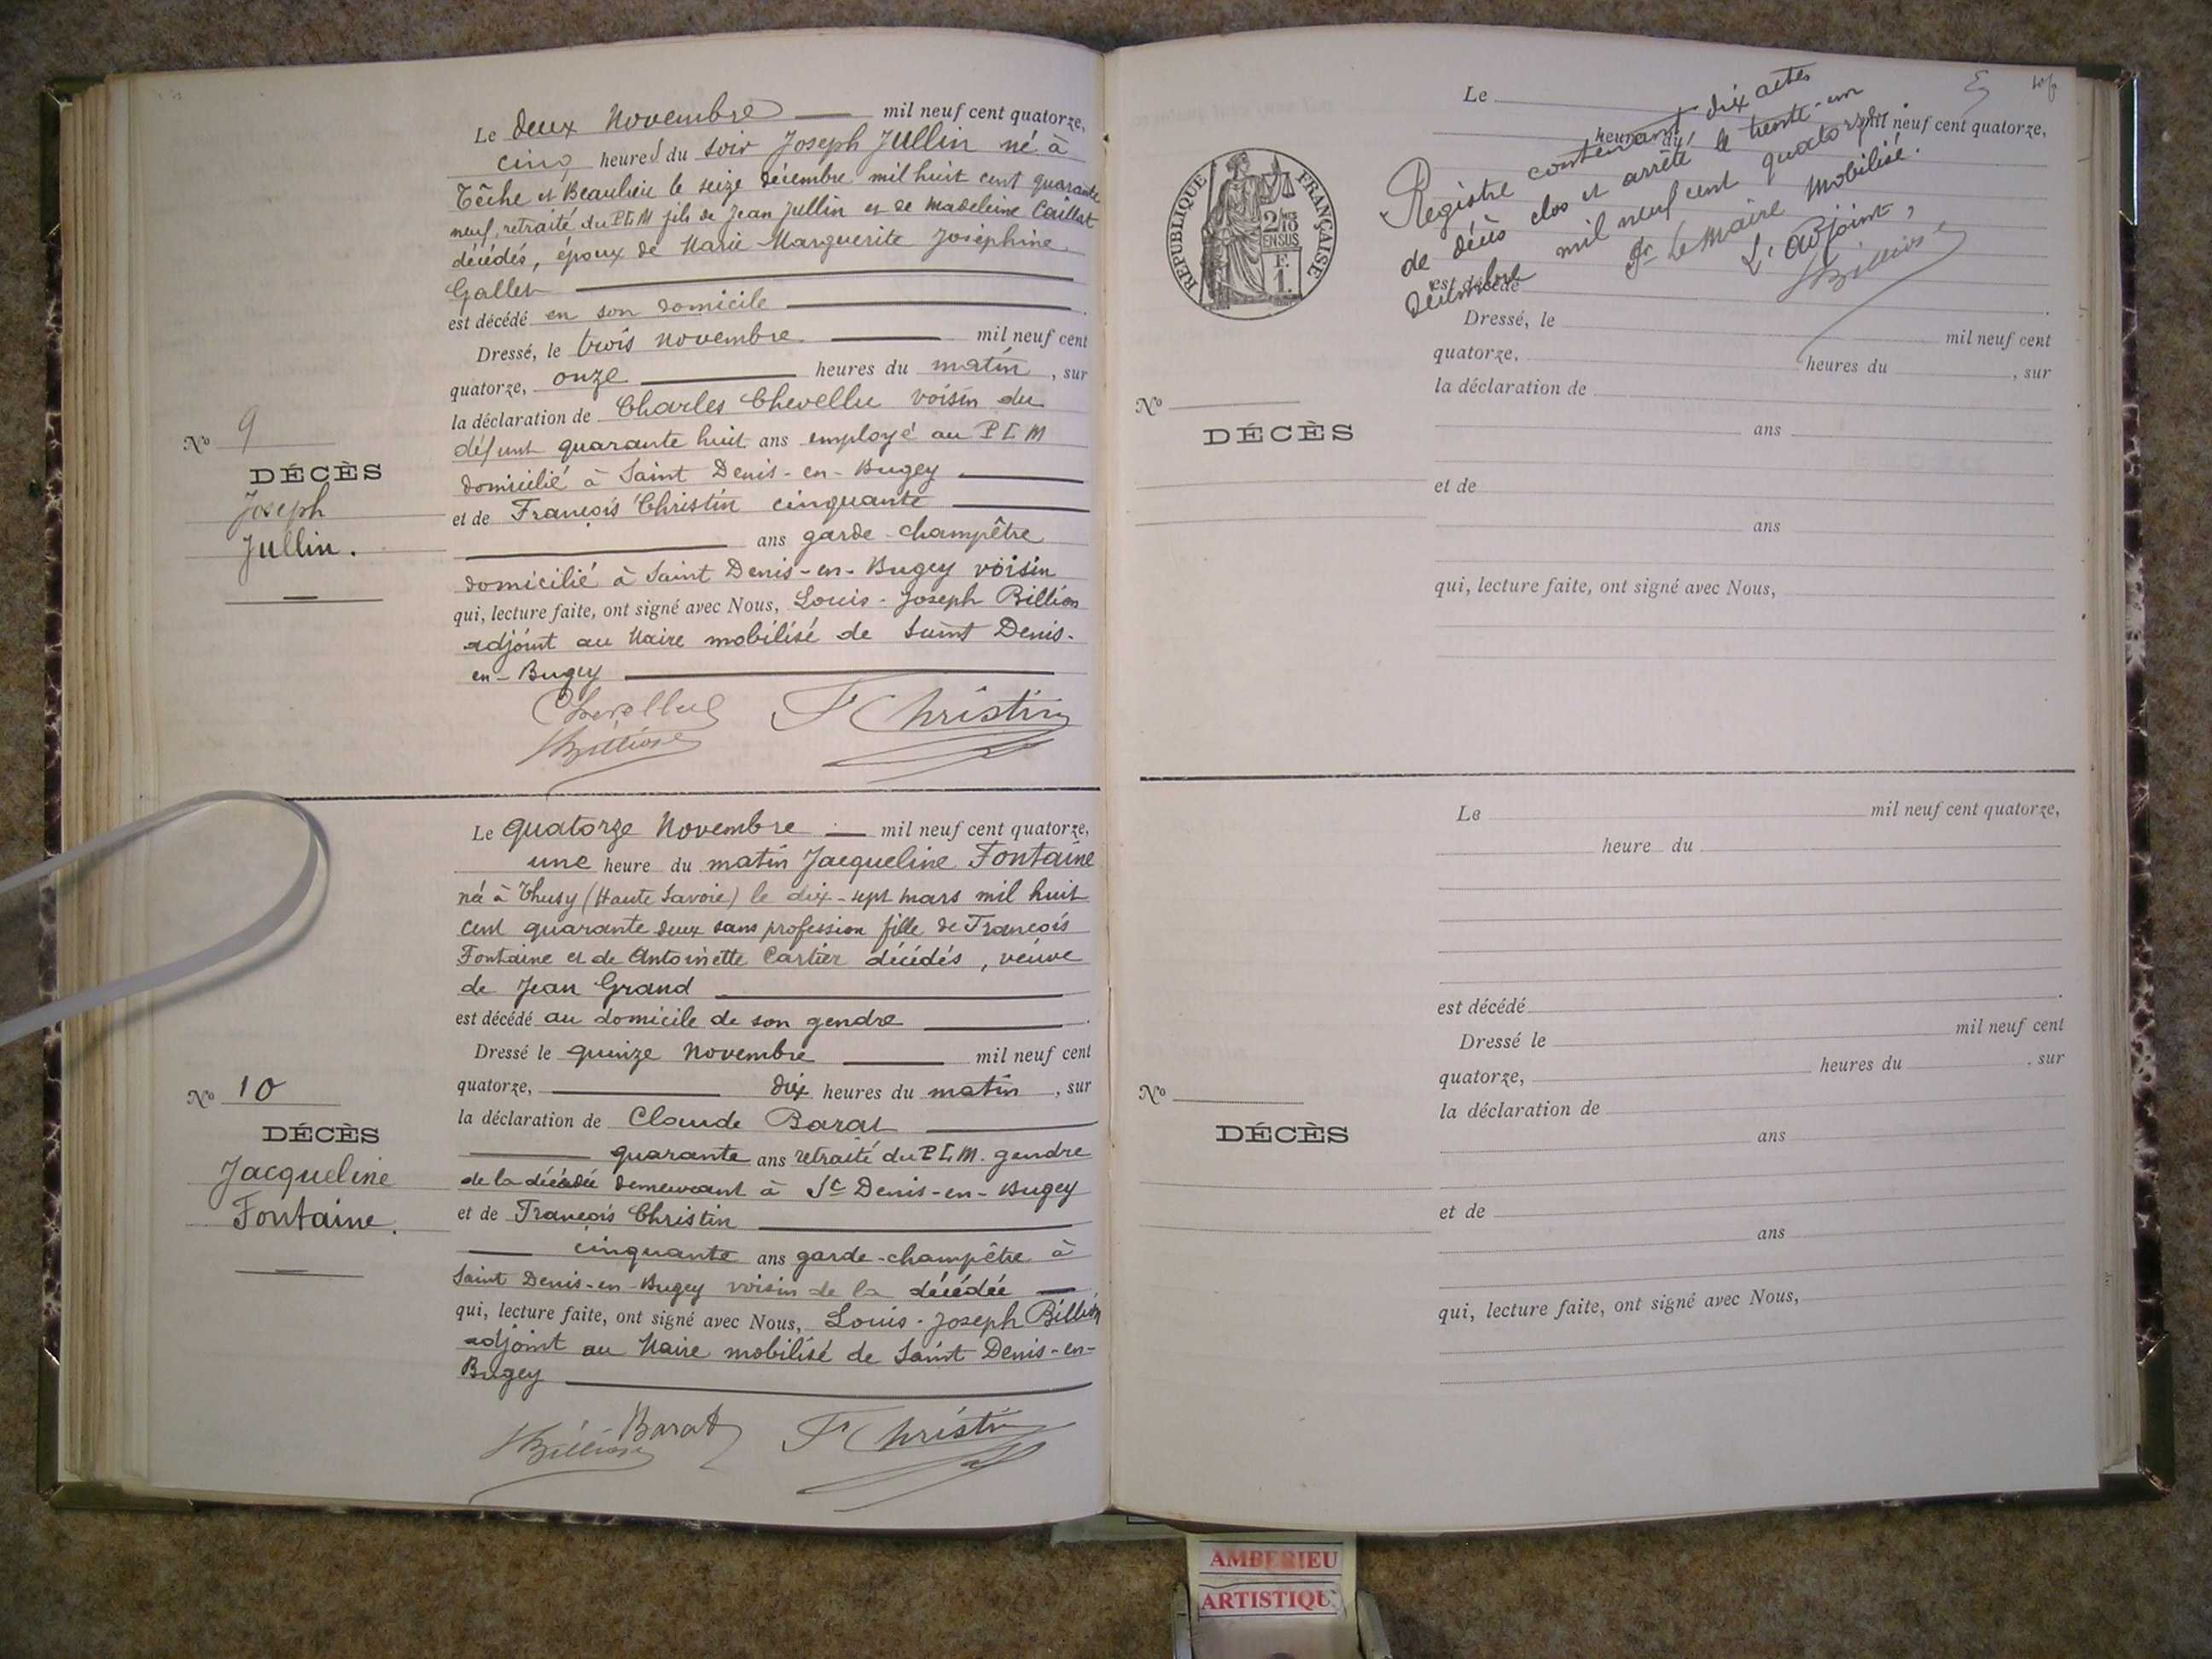 Le deux Novembre mil neuf cent quatorze,
cinq heures du soir Joseph Jullin né à
Têche et Beaulieu le seize décembre mil huit cent quarante
neuf, retraité du PLM fils de Jean Jullin et de Madeleine Caillat
décédés, époux de Marie Marguerite Joséphine
Gallet
est décédé en son domicile
Dressé, le trois novembre mil neuf cent
quatorze, onze heures du matin, sur
la déclaration de Charles Chevellu voisin du
défunt quarante huit ans employé au PLM
domicilié à Saint Denis-en-Bugey
et de François Christin cinquante
ans garde-champêtre
domicilié à Saint Denis-en-Bugey voisin
qui, lecture faite, ont signé avec Nous, Louis-Joseph Billion
adjoint au Maire mobilisé de Saint Denis-
en-Bugey
Chevellu F Christin
Billion
No 9
DÉCÈS
Joseph
Jullin.
Le quatorze Novembre mil neuf cent quatorze,
une heure du matin Jacqueline Fontaine
né à Thusy (Haute Savoie) le dix-sept mars mil huit
cent quarante deux sans profession fille de François
Fontaine et de Antoinette Cartier décédés, veuve
de Jean Grand
est décédé au domicile de son gendre.
Dressé le quinze Novembre mil neuf cent
quatorze, dix heures du matin, sur
la déclaration de Claude Barat
quarante ans retraité du PLM. gendre
de la décédée demeurant à St Denis-en-Bugey
et de François Christin
cinquante ans garde-champêtre à
Saint Denis-en-Bugey voisin de la décédée
qui, lecture faite, ont signé avec Nous, Louis-Joseph Billion
adjoint au Maire mobilisé de Saint Denis-en-
Bugey
Barat F Christin
Billion
No 10
DÉCÈS
Jacqueline
Fontaine.
RÉPUBLIQUE FRANÇAISE
2/10
EN SUS
F.
1.
Registre contenant dix actes
de décès clos et arrêté le trente-un
Décembre mil neuf cent quatorze
Pr Le Maire Mobilisé.
L'Adjoint,
Billion
Le
heure du mil neuf cent quatorze,
est décédé
Dressé, le mil neuf cent
quatorze, heures du , sur
la déclaration de
ans
et de
ans
qui, lecture faite, ont signé avec Nous,
No
DÉCÈS
Le mil neuf cent quatorze,
heure du
est décédé
Dressé le mil neuf cent
quatorze, heures du , sur
la déclaration de
ans
et de
ans
qui, lecture faite, ont signé avec Nous,
No
DÉCÈS
AMBERIEU
ARTISTIQU